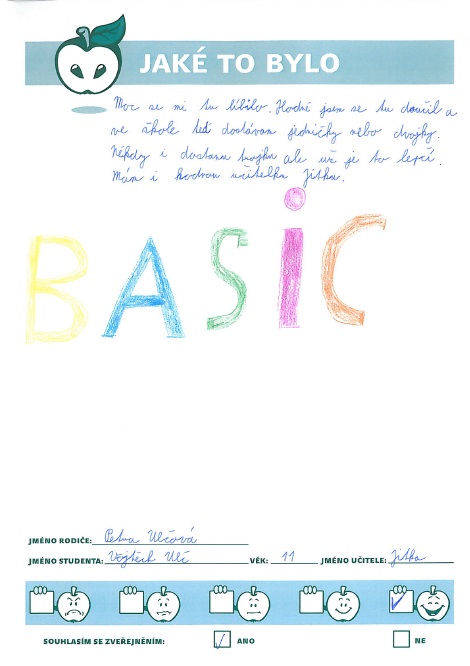 JAKÉ TO BYLO
Moc se mi tu líbilo. Hodně jsem se tu doučil a
ve škole teď dostávám jedničky nebo dvojky.
Někdy i dostanu trojku ale už je to lepčí.
Mám i hodnou učitelku Jitku.
BASiC
JMÉNO RODIČE: Petra Ulčová
JMÉNO STUDENTA: Vojtěch Ulč VĚK: 11 JMÉNO UČITELE: Jitka
SOUHLASÍM SE ZVEŘEJNĚNÍM: ANO NE